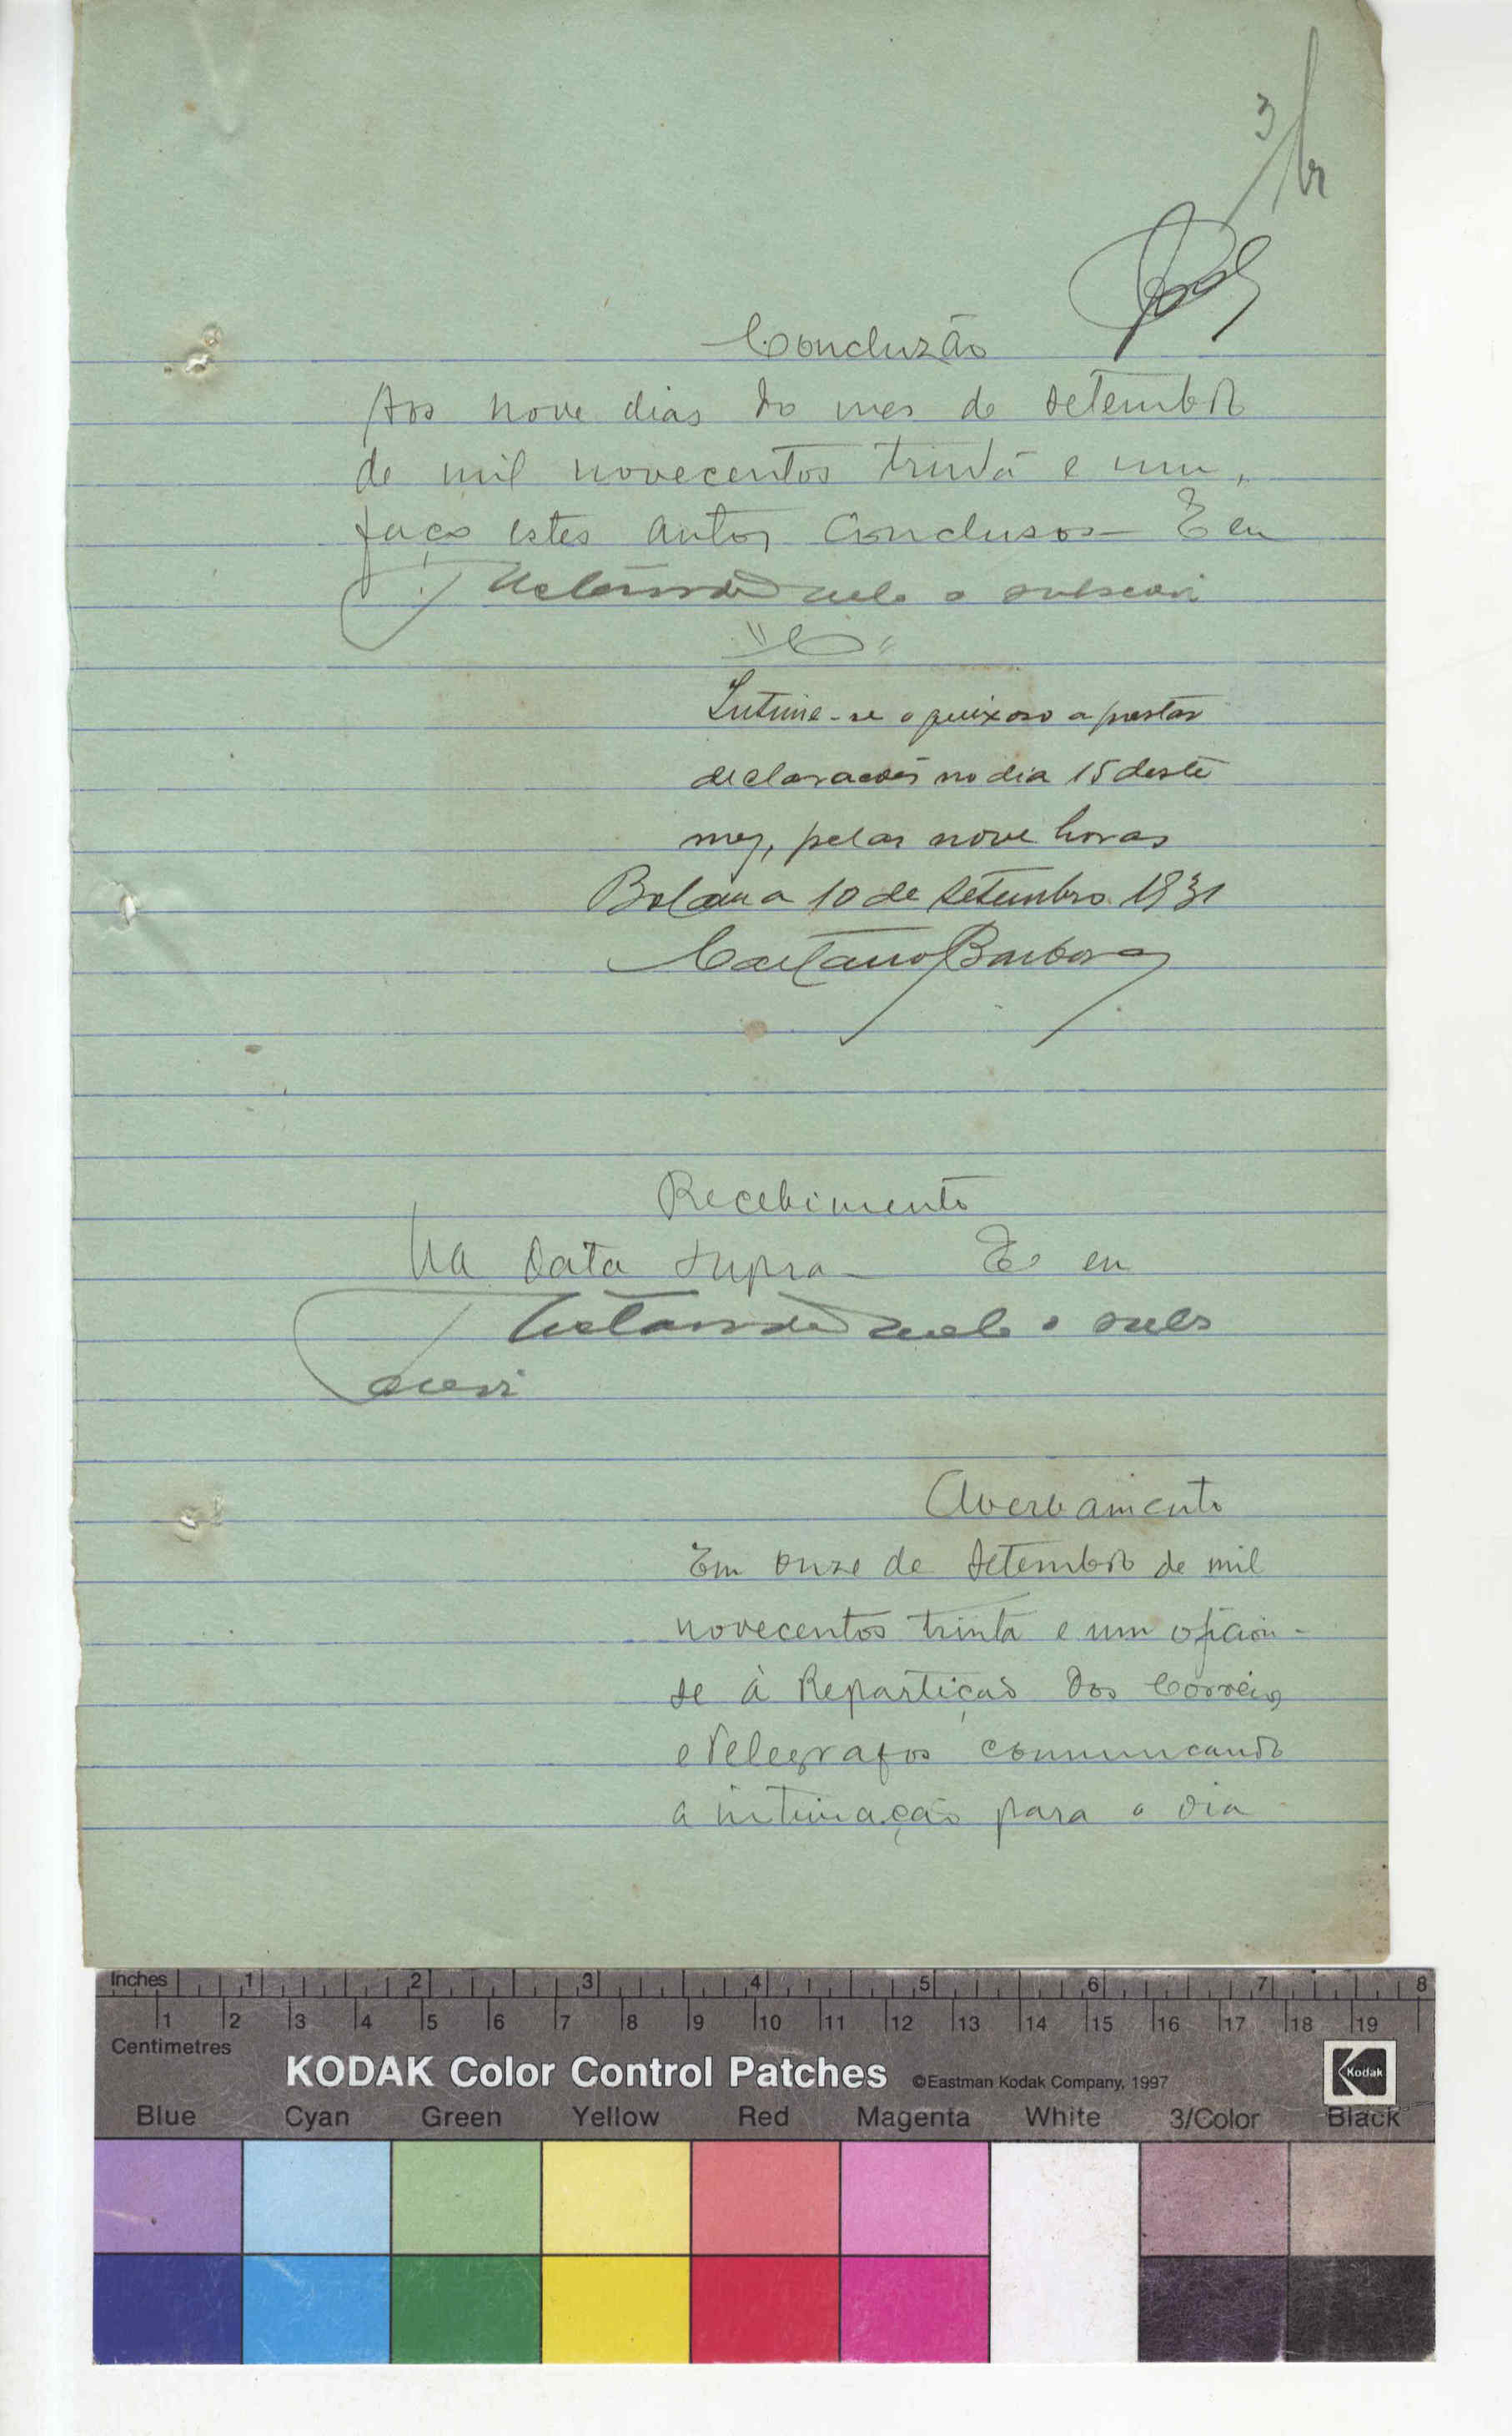 3
Concluzão
Aos nove dias do mes de setembro
de mil novecentos trinta e um,
faço estes autos conclusos — E eu
o subscrevi
Intime-se o queixoso a prestar
declaracões no dia 15 deste
mez, pelas nove horas
Bolama 10 de setembro 1931
Caetano Barbosa
Recebimento
Na data supra — E eu
o subs
crevi
Averbamento
Em onze de setembro de mil
novecentos trinta e um oficiou-
se à Repartição dos Correios
e Telegrafos comunicando
a intimação para o dia
Inches 1 2 3 4 5 6 7 8
1 2 3 4 5 6 7 8 9 10 11 12 13 14 15 16 17 18 19
Centimetres
KODAK Color Control Patches ©Eastman Kodak Company, 1997 Kodak
Blue Cyan Green Yellow Red Magenta White 3/Color Black